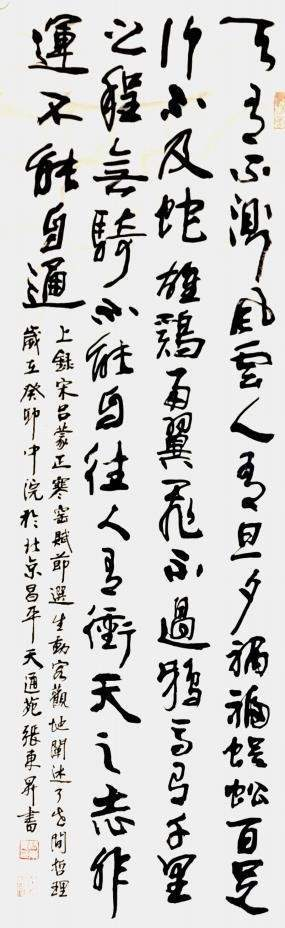 天有不測風雲人有旦夕禍福蜈蚣百足
行不及蛇雄鷄兩翼飛不過鴉馬有千里
之程無騎不能自往人有衝天之志非
運不能自通
上錄宋呂蒙正寒窑賦節選生動客觀地闡述了世間哲理
歲在癸卯中院於北京昌平天通苑張東昇書